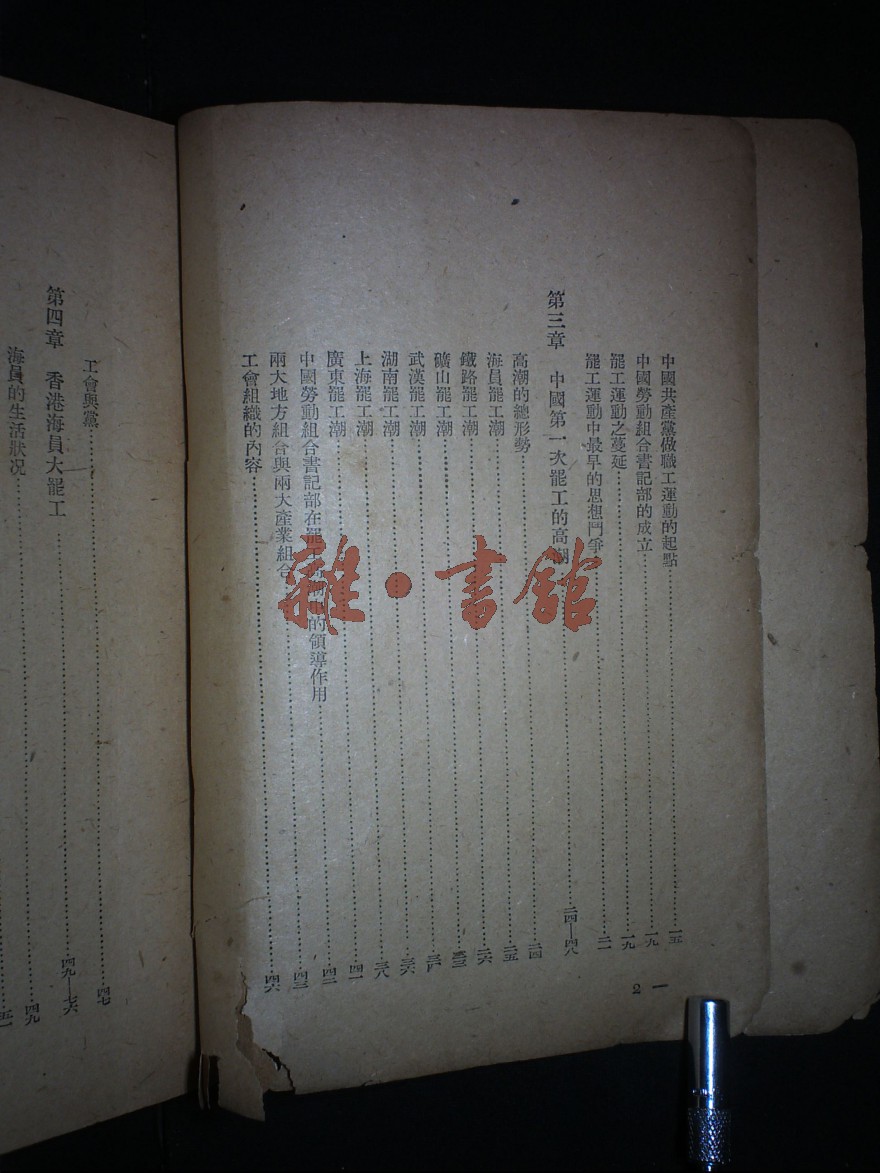 中國共產黨做職工運動的起點……一五
中國勞動組合書記部的成立……一九
罷工運動之蔓延……一九
罷工運動中最早的思想鬥爭……二一
第三章　中國第一次罷工的高潮……二四—四八
高潮的總形勢……二四
海員罷工潮……二五
鐵路罷工潮……二六
礦山罷工潮……三三
武漢罷工潮……
湖南罷工潮……三六
上海罷工潮……三八
廣東罷工潮……四一
中國勞動組合書記部在罷工高潮中的領導作用……四二
兩大地方組合與兩大產業組合……四三
工會組織的內容……四六
2 一
工會與黨……四七
第四章　香港海員大罷工……四九—七六
海員的生活狀况……四九
五一
雜·書館